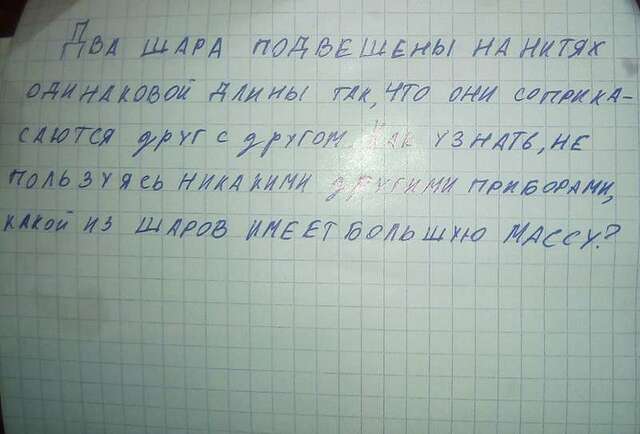 Два шара подвешены на нитях
одинаковой длины так, что они соприка-
саются друг с другом. Как узнать, не
пользуясь никакими другими приборами,
какой из шаров имеет большую массу?